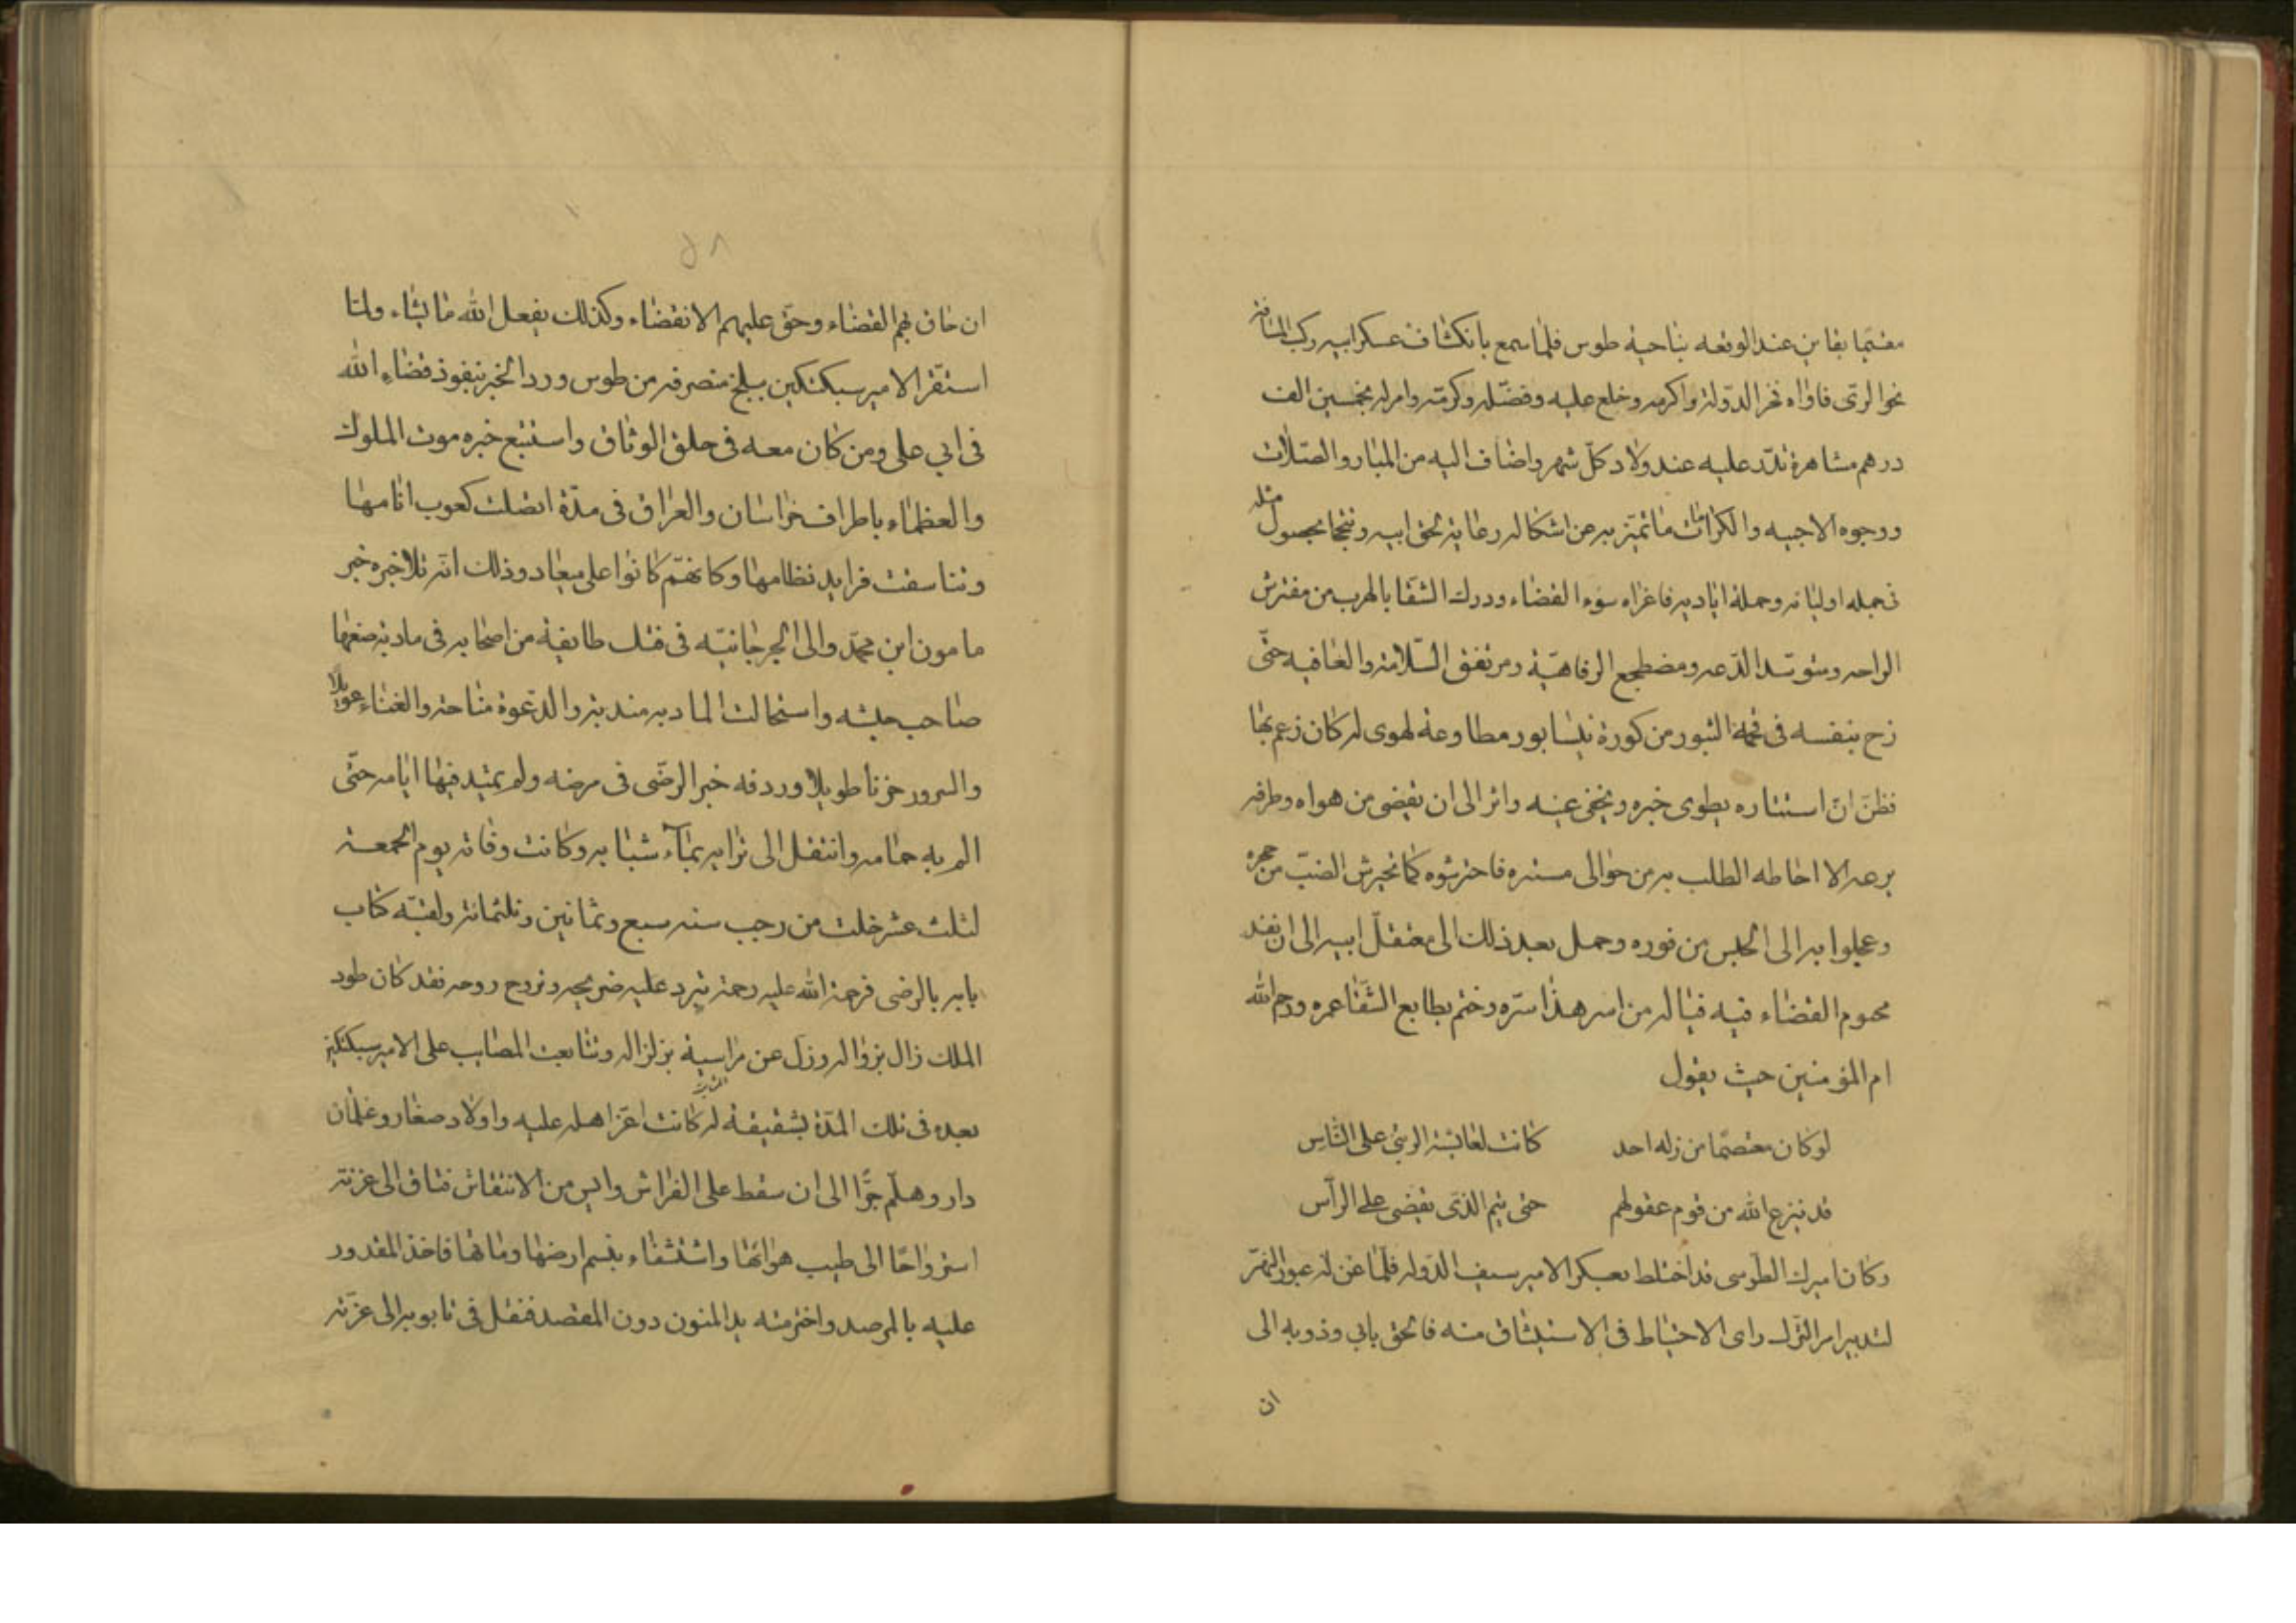 مقيما بقاين عند الوقعه بناحية طوس فلما سمع بانكشاف عسكر ابيه ركب المسافة
نحو الرى فاواه فخر الدولة واكرمه وخلع عليه وفضله وكرمه وامر له بخمسين الف
درهم مشاهرة تدر عليه عند ولاد كل شهر واضاف اليه من المبار والصلات
ووجوه الاجبيه والكرامات ما تميز به عن اشكاله رعاية لحق ابيه وتبجحا بحصول مثله
فى جمله اوليائه وحملة اياديه فاغراه سوء القضاء ودرك الشقا بالهرب من مفترش
الراحه ومتوسد الدعه ومضطجع الرفاهية ومرتفق السلامة والعافيه حتى
زج بنفسه فى قحمة الثبور من كورة نيسابور مطاوعة لهوى له كان زعم بها
فظن ان استتاره يطوى خبره ويخفى عينه واثره الى ان يقضى من هواه وطره فلم
يرعه الا احاطه الطلب به من حوالى مستتره فاحترشوه كما تحترش الضب من حجره
وعجلوا به الى الحبس من فوره وحمل بعد ذلك الى معتقل ابيه الى ان نفذ
محتوم القضاء فيه فيا له من اسر هذا سره وختم بطابع الشقا عمره ورحم الله
ام المؤمنين حيث يقول
لو كان معتصما من زله احد كانت لعائشة الرتبى على الناس
قد ينزع الله من قوم عقولهم حتى يتم الذى يقضى على الرأس
وكان اميرك الطوسى قد اختلط بعسكر الامير سيف الدوله فلما عن له عبور النهر
لتدبير امر الترك راى الاحتياط فى الاستيثاق منه فالحق بابي وذويه الى
ان
٥٨
ان حاق بهم القضاء وحق عليهم الانقضاء وكذلك يفعل الله ما يشاء ولما
استقر الامير سبكتكين ببلخ منصرفه من طوس ورد الخبر بنفوذ قضاء الله
فى ابي على ومن كان معه فى حلق الوثاق واستتبع خبره موت الملوك
والعظماء باطراف خراسان والعراق فى مدة اتصلت كعوب ايامها
وتناسقت فرايد نظامها وكانهم كانوا على ميعاد وذلك انه تلا خبره خبر
مامون ابن محمد والى الجرجانيه فى فتك طايفة من اصحابه فى مادبة صنعها
صاحب جيشه واستحالت المادبه مندبة والدعوة مناحة والغناء عويلا
والسرور حزنا طويلا وردفه خبر الرضى فى مرضه ولم يمتد فيها ايامه حتى
الم به حمامه وانتقل الى ترابه بماء شبابه وكانت وفاته يوم الجمعة
لثلث عشر خلت من رجب سنه سبع وثمانين وثلثمائة ولقبه كتاب
بابه بالرضى فرحمة الله عليه رحمة تبرد عليه ضريحه وتروح روحه فقد كان طود
الملك زال بزواله وزل عن مراسيه بزلزاله وتتابعت المصايب على الامير سبكتكين
بعده فى تلك المدة بشقيقة له كانت اعز اهله عليه واولاد صغار وغلمان
دار وهلم جرا الى ان سقط على الفراش وايس من الانتقاش فتاق الى غزنة
استرواحا الى طيب هوائها واستشفاء بنسيم ارضها ومائها فاخذ المقدور
عليه بالمرصد واخترمته يد المنون دون المقصد فنقل فى تابوته الى غزنة